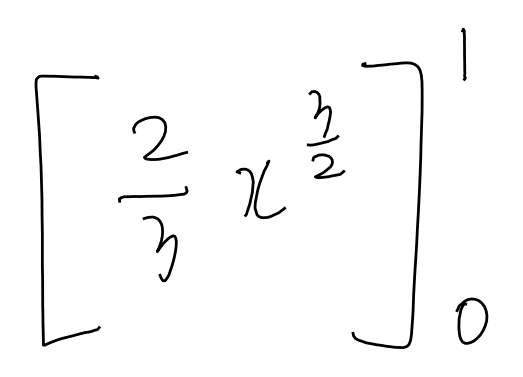 \left[ \frac{2}{3} x^{\frac{3}{2}} \right]_{0}^{1}